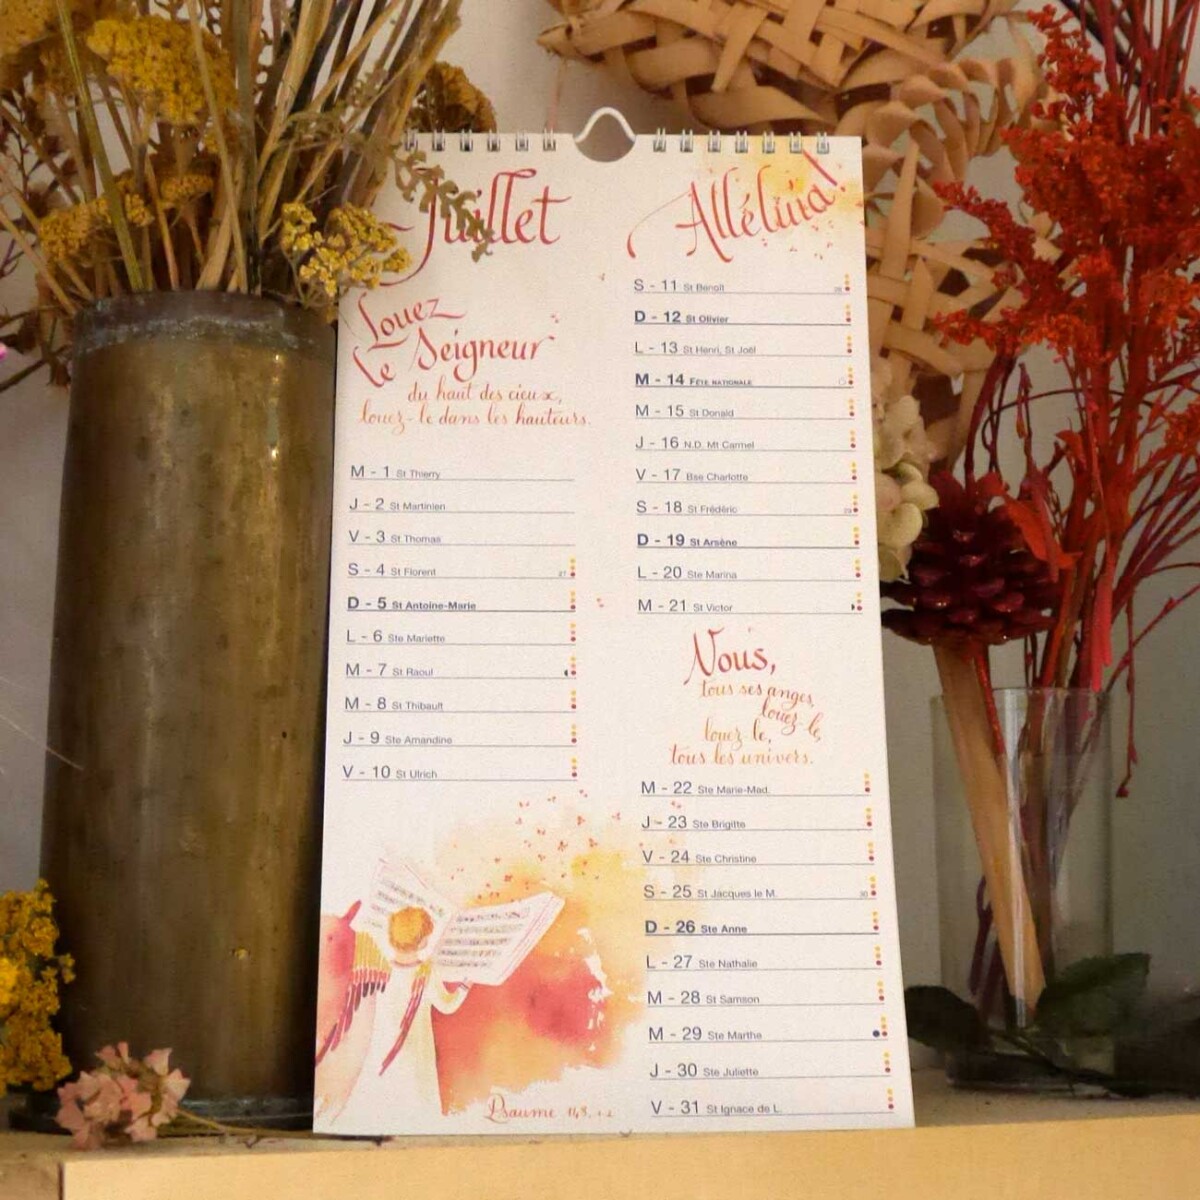 Juillet
Alléluia!
Louez
le Seigneur
du haut des cieux,
louez-le dans les hauteurs.
M - 1 St Thierry
J - 2 St Martinien
V - 3 St Thomas
S - 4 St Florent 27
D - 5 St Antoine-Marie
L - 6 Ste Mariette
M - 7 St Raoul
M - 8 St Thibault
J - 9 Ste Amandine
V - 10 St Ulrich
S - 11 St Benoît 28
D - 12 St Olivier
L - 13 St Henri, St Joël
M - 14 FÊTE NATIONALE
M - 15 St Donald
J - 16 N.D. Mt Carmel
V - 17 Bse Charlotte
S - 18 St Frédéric 29
D - 19 St Arsène
L - 20 Ste Marina
M - 21 St Victor
Vous,
tous ses anges,
louez-le,
louez-le,
tous les univers.
M - 22 Ste Marie-Mad.
J - 23 Ste Brigitte
V - 24 Ste Christine
S - 25 St Jacques le M. 30
D - 26 Ste Anne
L - 27 Ste Nathalie
M - 28 St Samson
M - 29 Ste Marthe
J - 30 Ste Juliette
V - 31 St Ignace de L.
Psaume 148. 1-2